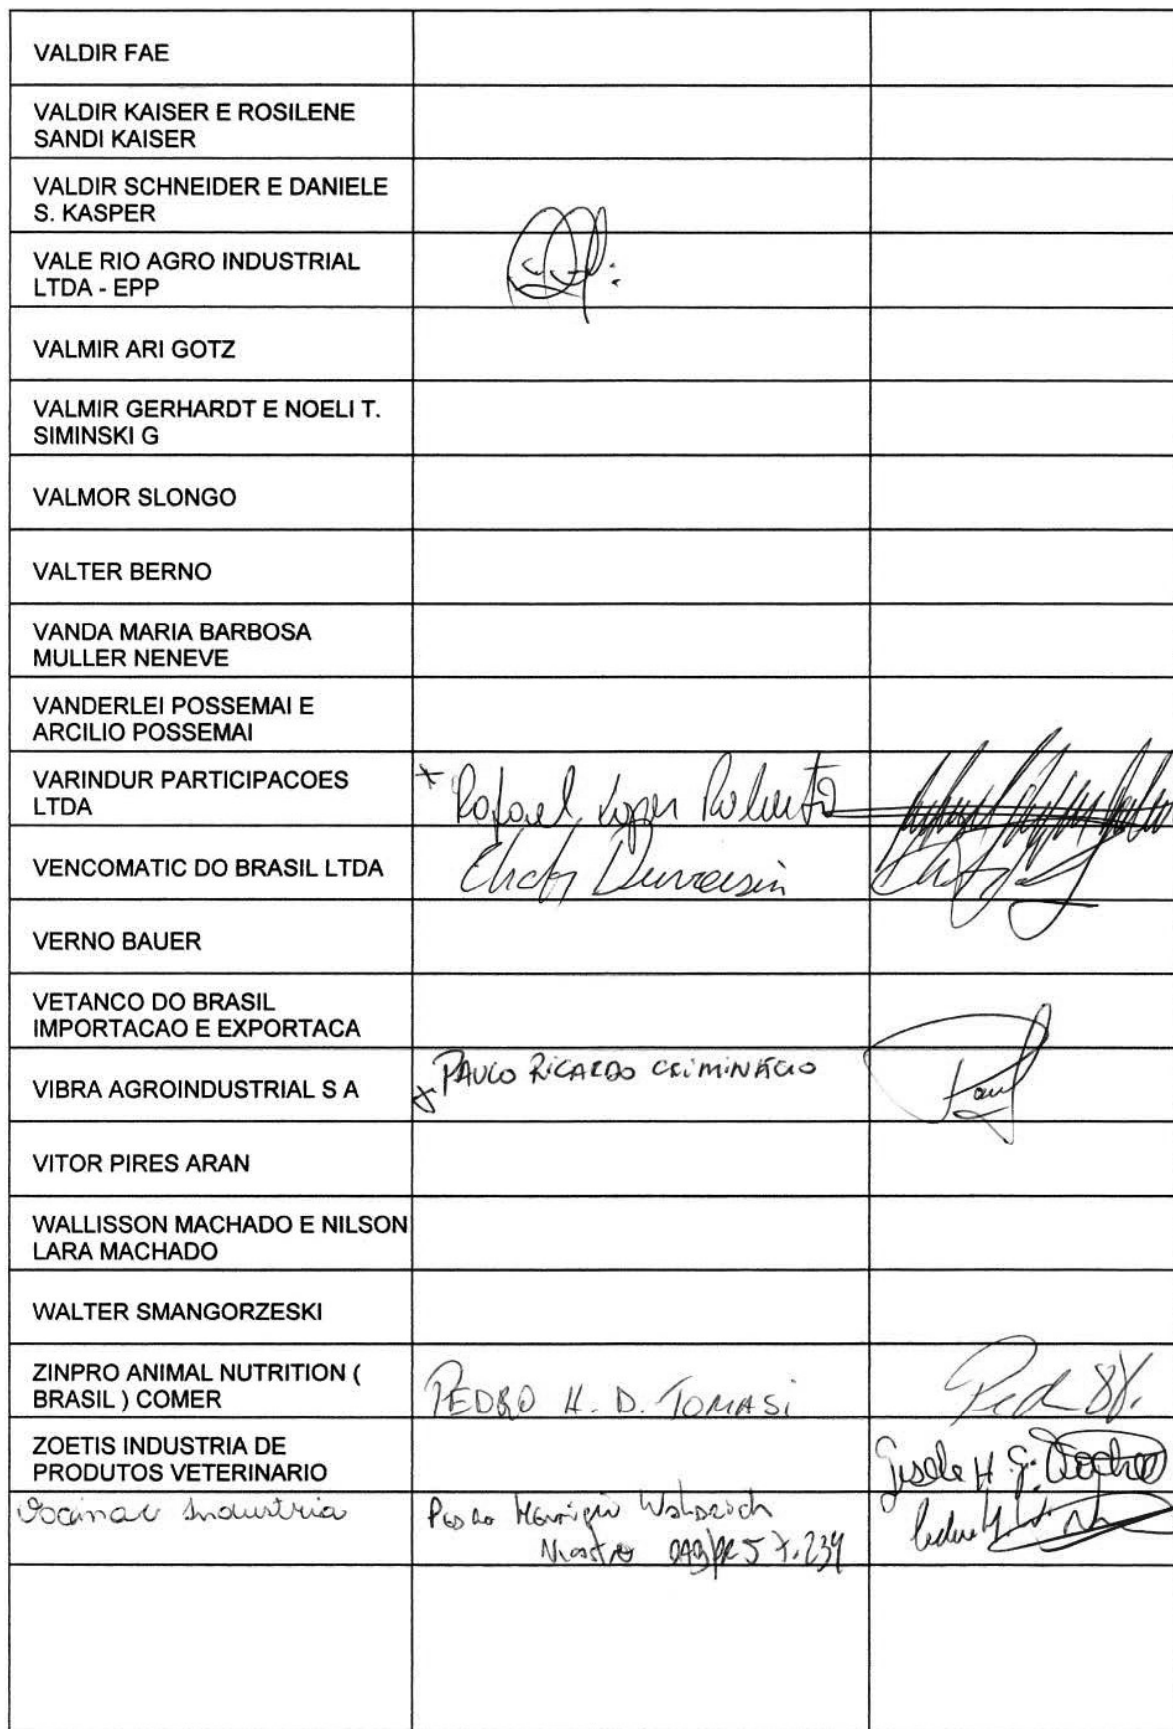 VALDIR FAE
VALDIR KAISER E ROSILENE
SANDI KAISER
VALDIR SCHNEIDER E DANIELE
S. KASPER
VALE RIO AGRO INDUSTRIAL
LTDA - EPP
VALMIR ARI GOTZ
VALMIR GERHARDT E NOELI T.
SIMINSKI G
VALMOR SLONGO
VALTER BERNO
VANDA MARIA BARBOSA
MULLER NENEVE
VANDERLEI POSSEMAI E
ARCILIO POSSEMAI
VARINDUR PARTICIPACOES
LTDA
Rafael
VENCOMATIC DO BRASIL LTDA
VERNO BAUER
VETANCO DO BRASIL
IMPORTACAO E EXPORTACA
VIBRA AGROINDUSTRIAL S A
PAULO RICARDO
VITOR PIRES ARAN
WALLISSON MACHADO E NILSON
LARA MACHADO
WALTER SMANGORZESKI
ZINPRO ANIMAL NUTRITION (
BRASIL ) COMER
PEDRO H. D. TOMASI
ZOETIS INDUSTRIA DE
PRODUTOS VETERINARIO
Gisele H. G.
Industria
OAB/PR 57.239